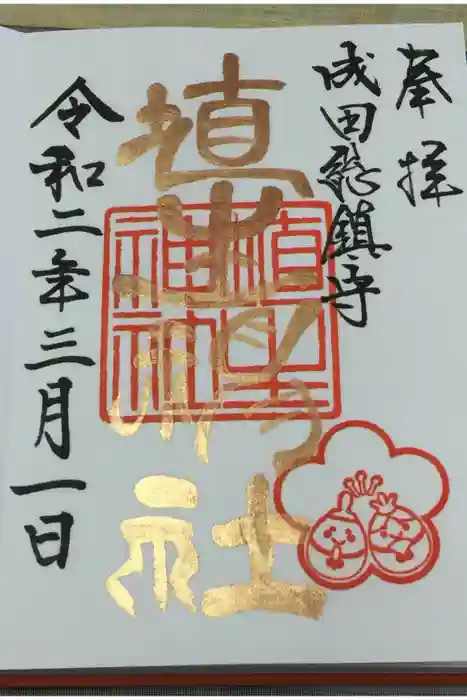 奉拝
成田総鎮守
埴生神社
埴生
神社
令和二年三月一日